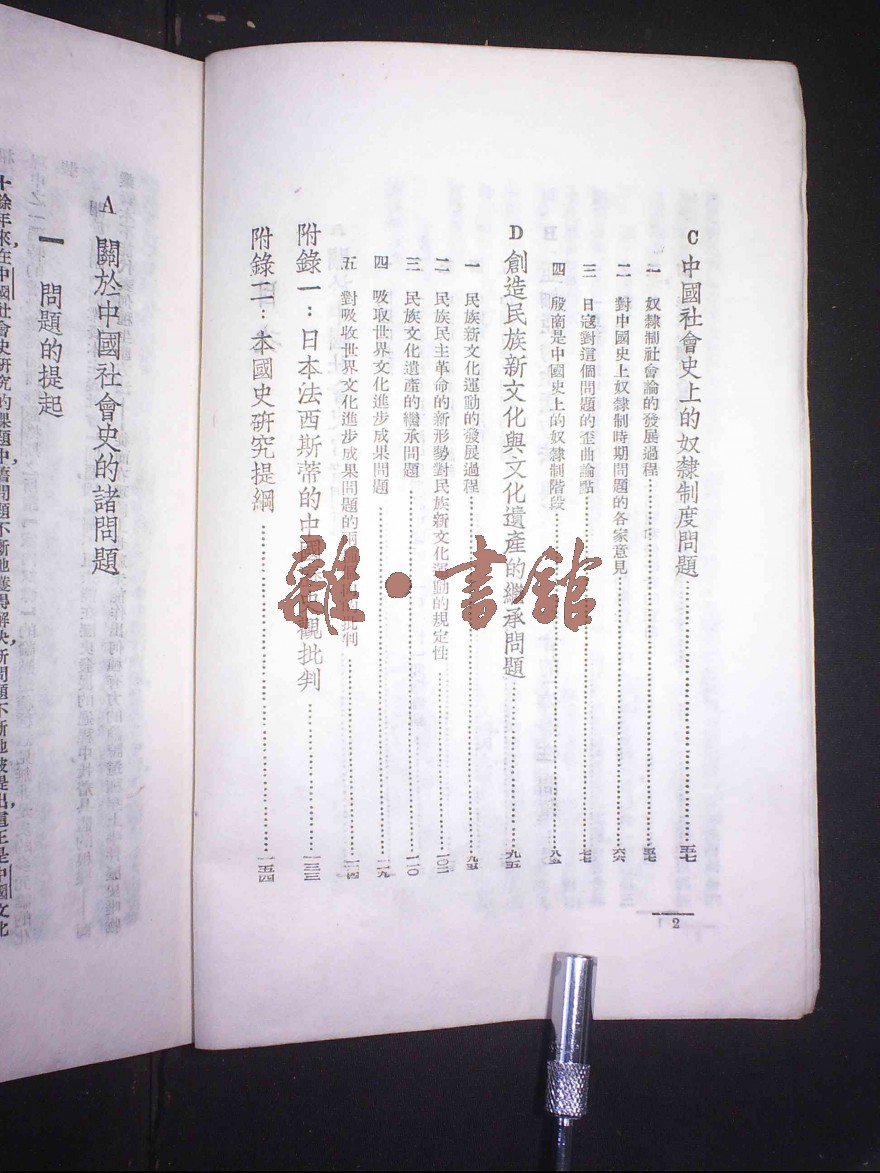 C 中國社會史上的奴隸制度問題……五七
一 奴隸制社會論的發展過程……五七
二 對中國史上奴隸制時期問題的各家意見……六六
三 日寇對這個問題的歪曲論點……七七
四 殷商是中國史上的奴隸制階段……八五
D 創造民族新文化與文化遺產的繼承問題……九五
一 民族新文化運動的發展過程……九五
二 民族民主革命的新形勢對民族新文化運動的規定性……一〇二
三 民族文化遺產的繼承問題……一一〇
四 吸取世界文化進步成果問題……一一九
五 對吸收世界文化進步成果問題的批判……一二四
附錄一：日本法西斯蒂的中國歷史觀批判……一三三
附錄二：本國史研究提綱……一五四
2
雜·書館
A 關於中國社會史的諸問題
一 問題的提起
十餘年來在中國社會史研究的課題中舊問題不斷地獲得解決新問題不斷地被提出這正是中國文化